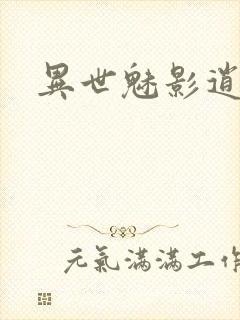 異世魅影逍
元氣滿滿工作